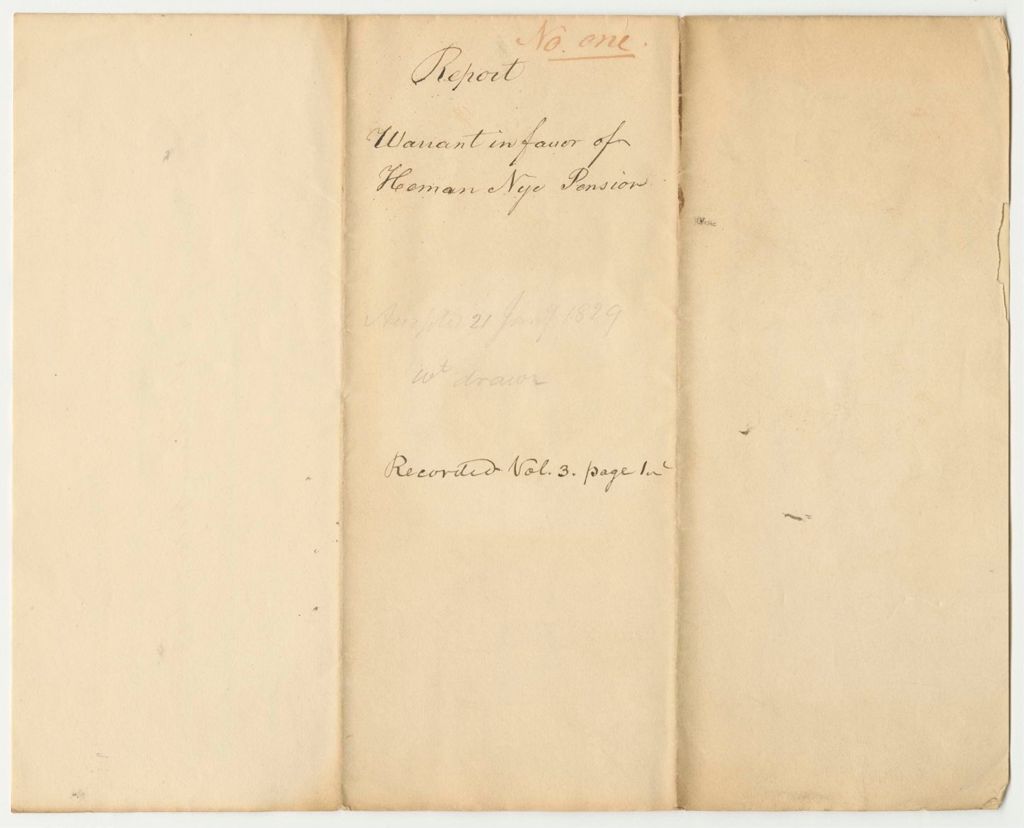 No. one.
Report
Warrant in favor of
Heman Nye Pension
21 Jany 1829
wt drawn
Recorded Vol. 3. page